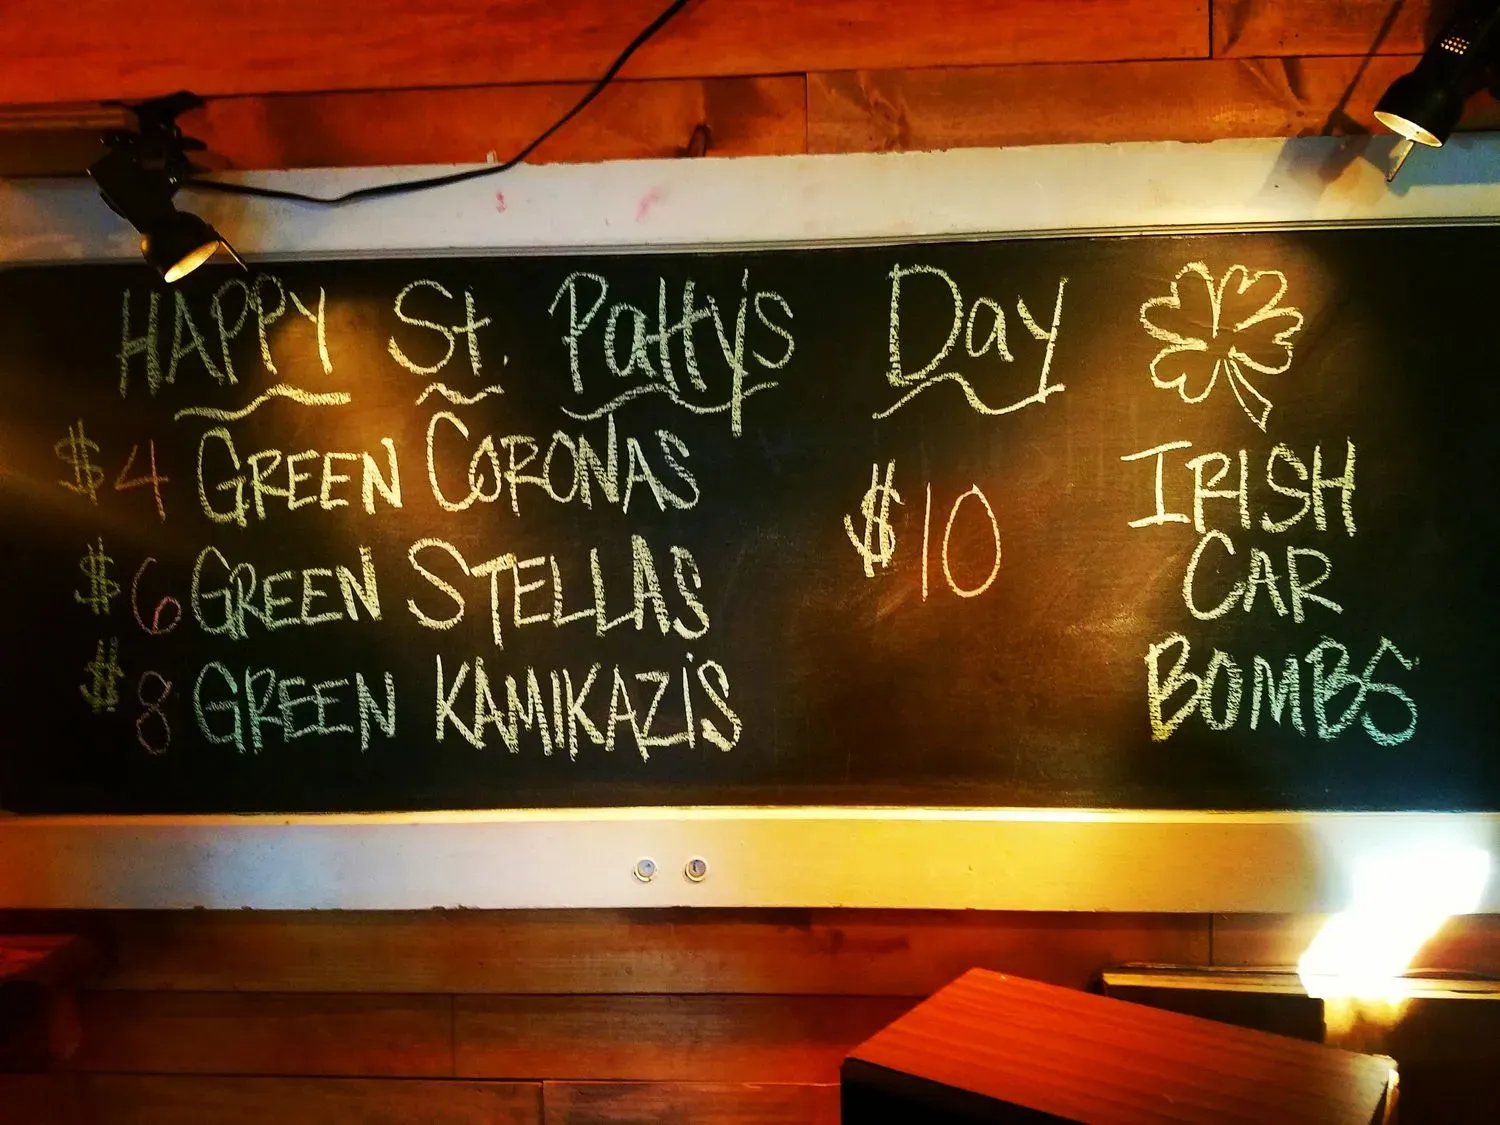 HAPPY St. Patty's Day
$4 GREEN CORONAS
$6 GREEN STELLAS
$8 GREEN KAMIKAZi'S
$10 IRISH
CAR
BOMBS